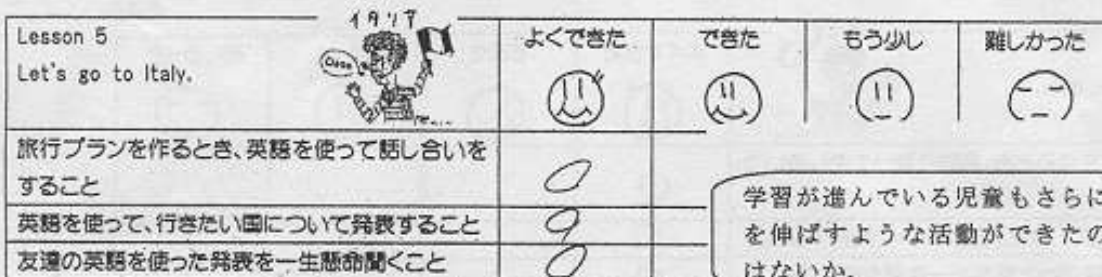 イタリア
Lesson 5
Let's go to Italy.
よくできた
できた
もう少し
難しかった
Ciao
旅行プランを作るとき、英語を使って話し合いを
すること
英語を使って、行きたい国について発表すること
友達の英語を使った発表を一生懸命聞くこと
学習が進んでいる児童もさらに
を伸ばすような活動ができたの
はないか。